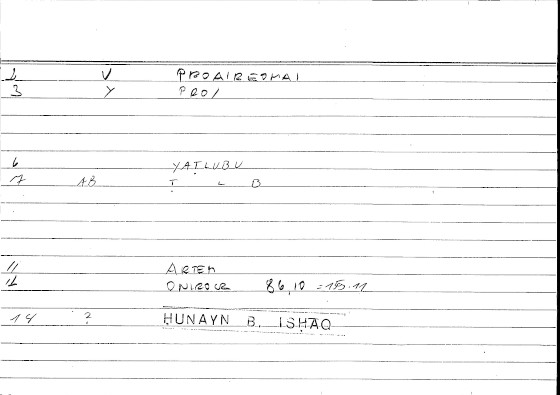 2 V PROAIREOMAI
3 Y PRO/
6 YAṬLUBU
7 AB Ṭ L B
11 ARTEM
12 ONIROCR 86,10 =195.11
14 ? HUNAYN B. ISḤAQ